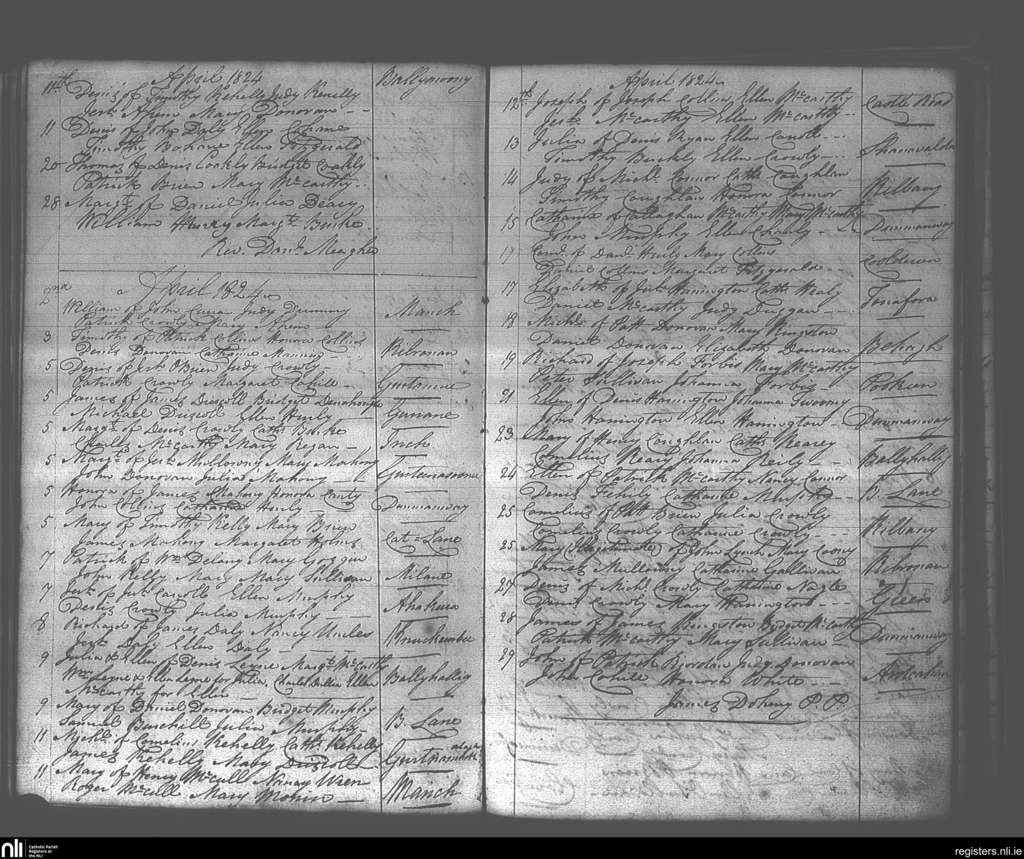 April 1824
11th Denis of Timothy Kehelly Judy Kenelly Ballynoony
Jerh Ahern Mary Donovan
11 Denis of John Daly Ellen
Timothy Bohane Ellen Fitzgerald
20 Thomas of Denis Coakly Bridget Coakly
Patrick Brien Mary McCarthy
28 Margt of Daniel Julia Deacy
William Henry Margt Burke
Revd Danl Meagher
April 1824
2nd William of John Judy Dummy Manch
Patrick Crowly Mary Ahern
3 Timothy of Patrick Collins Honora Collins
Denis Donovan Catharine Manning Kilronan
5 Denis of Jerh O'Brien Judy Crowly
Patrick Crowly Margaret Cahill
5 James of James Driscoll Bridget
Michael Driscoll Ellen Hurly
5 Margt of Denis Crowly Cathe Burke
Charles McCarthy Mary Regan Inch
5 Margt of Jerh Mullowny Mary Mahony
John Donovan Julia Mahony
5 Honora of James Mahony Honora Hurly
John Collins Catharine Hurly Dunmanway
5 Mary of Timothy Kelly Mary Brien
James Mahony Margaret Holms Cat=Lane
7 Patrick of Wm Delany Mary
John Kelly Mary Mary Sullivan Milane
7 Jerh of Jerh Carrolle Ellen Murphy
Denis Crowly Julia Murphy Ahakeera
8 Richard of James Daly Nancy
Jerh Daly Ellen Daly
9 Julia & Ellen of Denis Leyne Margt McCarthy
Wm Leyne & Ellen Leyne for Julia, Charles Ellen Ballyhallig
McCarthy for Ellen
9 Mary of Daniel Donovan Bridget Murphy
Samuel Burchill Julia Murphy B. Lane
11 Michl of Cornelius Kehelly Cathe Kehelly
James Kehelly Mary Driscoll
11 Mary of Henry McCull Nancy Wren
Roger McCull Mary Manch
April 1824
12th Joseph of Joseph Collins Ellen McCarthy Castle Road
Jerh McCarthy Ellen McCarthy
13 Julia of Denis Ryan Ellen
Timothy Buckly Ellen Crowly
14 Judy of Michl Connor Cathe Coughlan
Timothy Coughlan Honora Connor Kilbany
15 Catharine of Callaghan McCarthy Mary McCarthy
John Murphy Ellen Crowly Dunmanway
17 of Danl Hurly Mary Collins
Daniel Collins Margaret Fitzgerald
17 Elizabeth of Jas Hanington Cathe Healy
Daniel McCarthy Judy Duggan Tonafora
18 Michl of Patt Donovan Mary Kingston
Daniel Donovan Elizabeth Donovan
19 Richard of Joseph Forbis Mary McCarthy
Peter Sullivan Johanna Forbis
21 Ellen of Denis Hanington Johanna Swoony
John Hanington Ellen Hanington Dunmanway
23 Mary of Henry Coughlan Cathe Neavey
Cornelius Johanna Reily Ballyhalig
24 Ellen of Patrick McCarthy Nancy Connor
Denis Catharine Murphy B. Lane
25 Cornelius of Patt Brien Julia Crowly
Cornelius Crowly Catharine Crowly Kilbany
25 Mary (Illegitimate) of John Lynch Mary Coony
James Mullowny Catharine Gallivan Kilronan
27 Denis of Michl Crowly Catharine Nagle
Denis Crowly Mary Hanington
28 James of James Kingston Bridget McCarthy
Patrick McCarthy Mary Sullivan Dunmanway
29 John of Patrick Riordan Judy Donovan
John Cahill Honora White
James Doheny P.P.
nli
Catholic Parish
Registers at
the NLI
registers.nli.ie